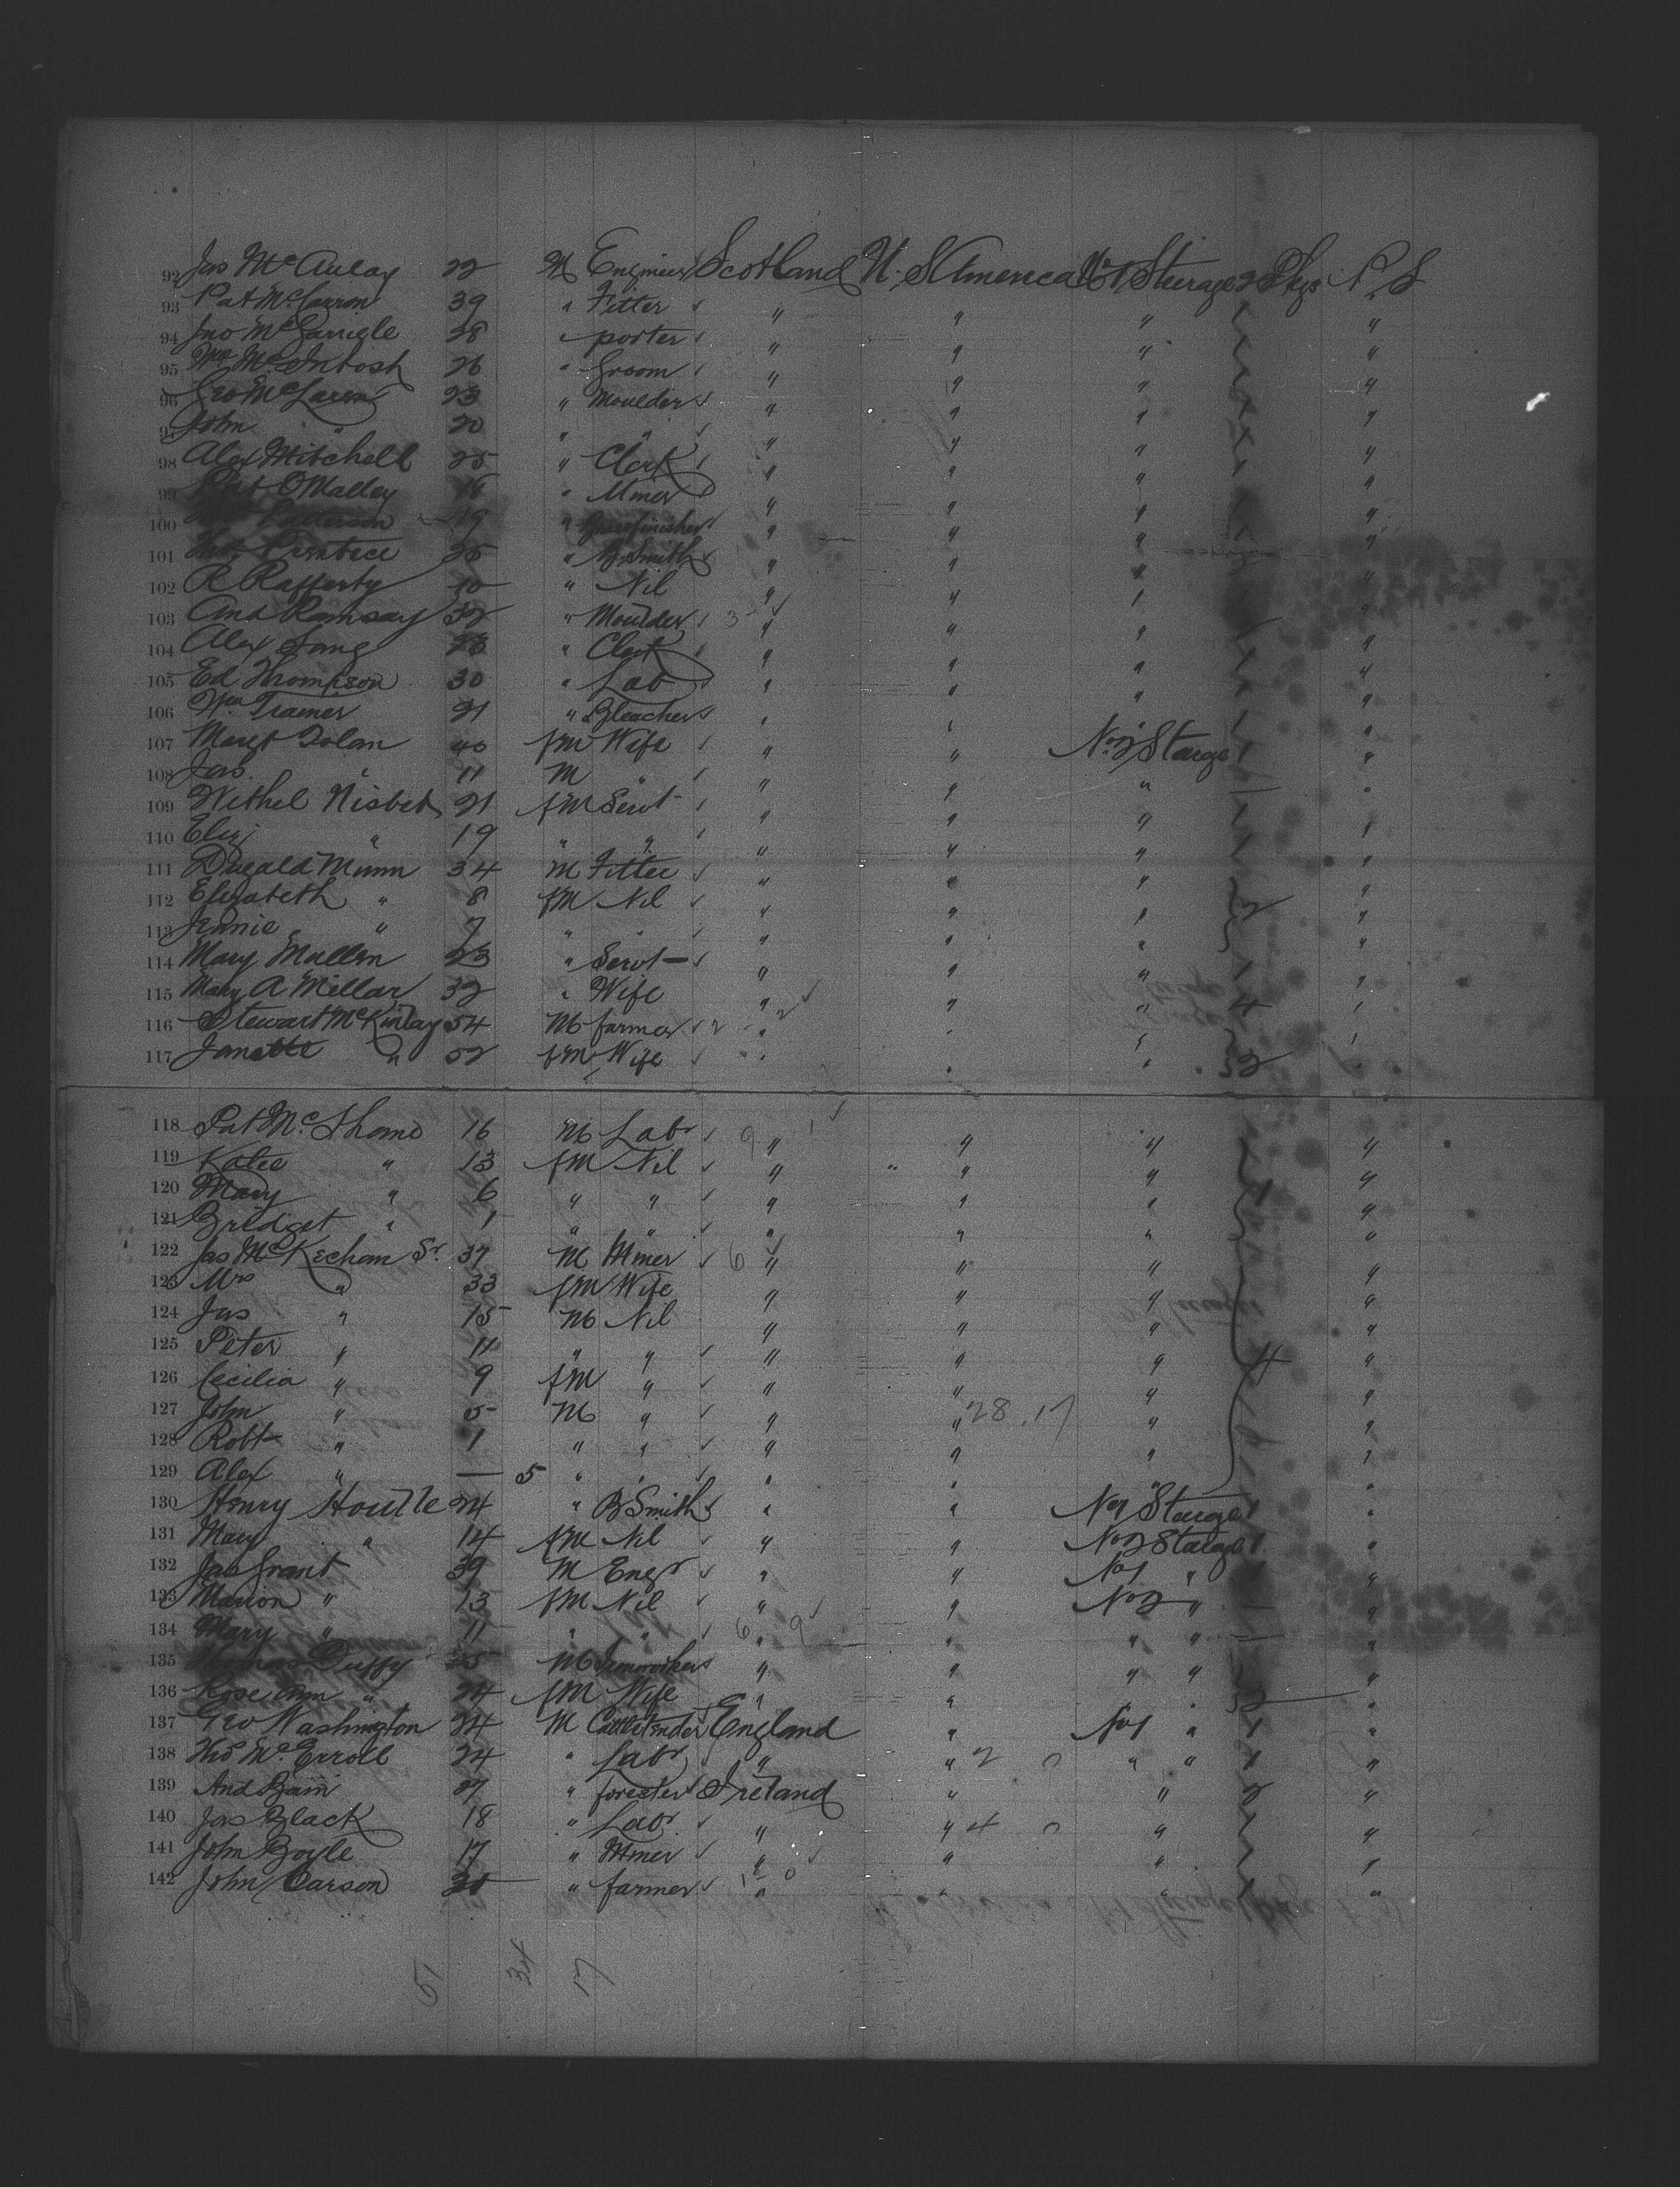 92 Jas McAulay 22 M Engineer Scotland U. S America No 1 Sturage 2 Pkgs P. S
93 Pat McCarron 39 " Fitter " " " 1 "
94 Jno McGarrigle 28 " porter " " " "
95 Wm McIntosh 26 " Groom " " " "
96 Geo McLaren 23 " Moulder " " " "
97 John " 20 " " " " " "
98 Alex Mitchell 25 " Clerk " " " 1 "
99 Pat O'Malley 16 " Miner " " " "
100 Patterson 19 " Brassfinisher " " " "
101 Prentice 25 " B. Smith " " " "
102 R Rafferty 10 " Nil " " " "
103 And Ramsay 32 " Moulder 3 " " "
104 Alex Lang 26 " Clerk " " " "
105 Ed Thompson 30 " Lab " " " "
106 Wm Tramer 21 " Bleacher " " " "
107 Margt Dolan 40 fM Wife " " No 2 Sturage 1 "
108 Jas. " 11 M " " " " — "
109 Nisbet 21 fM Servt " " " 1 "
110 Eliz " 19 " " " " " 1 "
111 Dugald Munn 34 M Fitter " " " "
112 Elizabeth " 8 fM Nil " " " 2 "
113 Jennie " 7 " " " " " "
114 Mary Mullen 23 " Servt " " " 1 "
115 Mary A Millar 32 " Wife " " " 4 "
116 Stewart McKinlay 54 M farmer 2 " 2 " " "
117 Janette " 52 fM Wife " " " 2 "
118 Pat McShane 16 M Labr 9 " 1 " " "
119 Katie " 13 fM Nil " " " "
120 Mary " 6 " " " " " 1 "
121 Bridget " 1 " " " " " "
122 Jas McKecham Sr. 37 M Miner 6 " " " "
123 Mrs " 33 fM Wife " " " "
124 Jas " 15 M Nil " " " "
125 Peter " 11 " " " " " 4 "
126 Cecilia " 9 fM " " " " "
127 John " 5 M " " " 28.17 " "
128 Robt " 1 " " " " " "
129 Alex " — 5 " " " " " "
130 Henry 24 " B Smith " " No 1 Sturage 1 "
131 Mary " 14 fM Nil " " No 2 Sturage 1 "
132 Jas Grant 39 M Engr " " No 1 " 1 "
133 Marion " 13 fM Nil " " No 2 " — "
134 Mary " 11 " " 6 " 9 " " " — "
135 Thomas Duffy 25 M Ironworker " " " " "
136 Rose Ann " 24 fM Wife " " " 2 "
137 Geo Washington 24 M Cattletender England " No 1 " 1 "
138 Tho McErroll 24 " Labr " " 2 0 " " 1 "
139 And Bain 27 " forester Ireland " " 2 "
140 Jas Black 18 " Labr " " 4 0 " "
141 John Boyle 17 " Miner " " " "
142 John Carson " farmer 1 " 0 " " 1 "
51 34 17